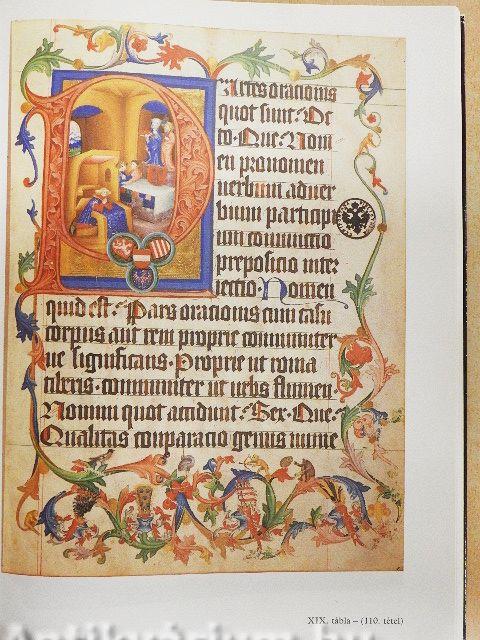 Partes oracionis
quot sunt· Oc
to· Que· Nom
en pronomen
uerbum aduer
bium particip
um coniunctio
preposicio inter
iectio· Nomen
quid est· Pars oracionis cum casu
corpus aut rem proprie communiter
ue significans· Proprie ut roma
tiberis· communiter ut urbs flumen·
Nomini quot accidunt· Sex· Que·
Qualitas conparacio genus nume
XIX. tábla – (110. tétel)